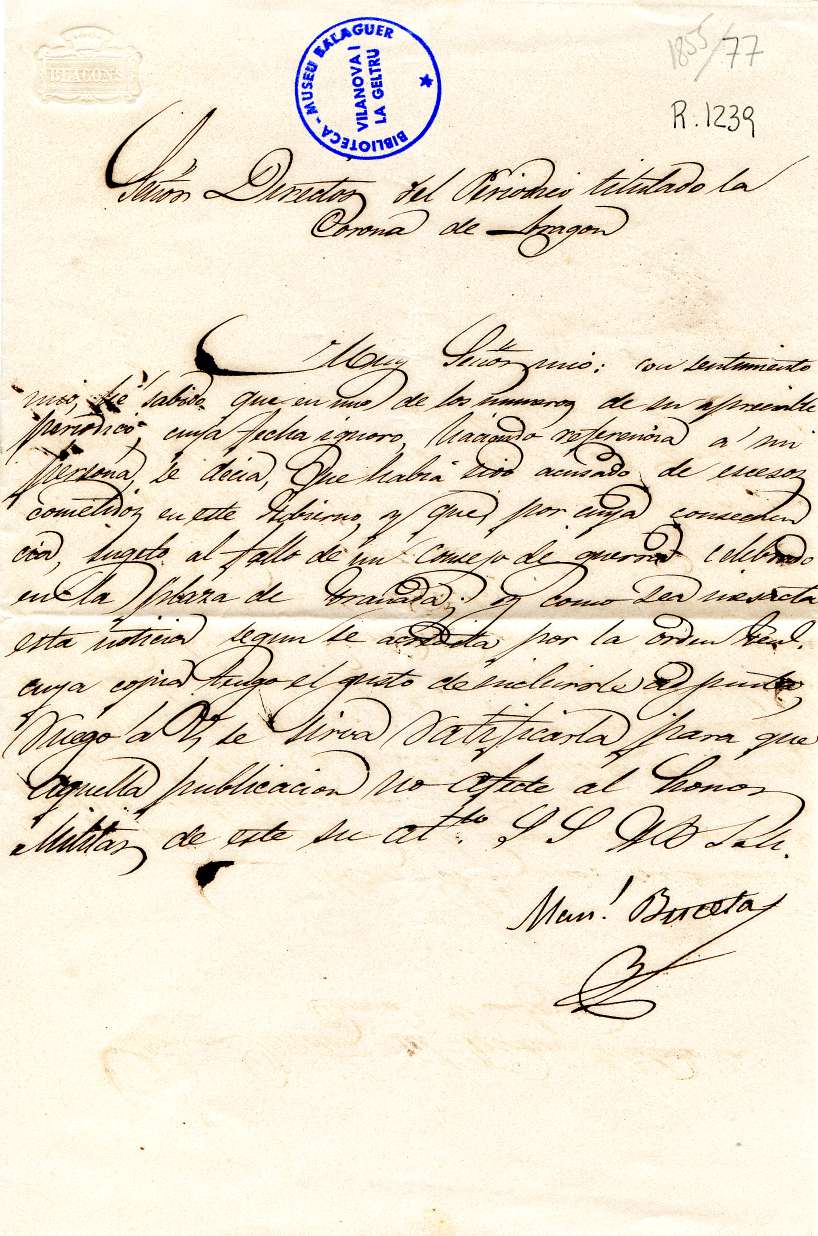 BEACONS
BIBLIOTECA - MUSEU BALAGUER
VILANOVA I
LA GELTRU
1855/77
R. 1239
Señor Director del Periodico titulado la
Corona de Aragon
Muy Señor mio: con sentimiento
mio, he sabido que en uno de los numeros de su apreciable
periodico, cuya fecha ignoro, haciendo referencia a mi
persona, se decia, que habia sido acusado de escesos
cometidos en este Gobierno, y que por cuya consecuen
cia, sugeto al fallo de un Consejo de guerra celebrado
en la plaza de Granada; y como sea inesacta
esta noticia segun se acredita por la orden Real.
cuya copia tengo el gusto de incluirle adjunta,
Ruego á V. se sirva ratificarla, para que
aquella publicacion no afecte al honor
Militar, de este su at.to S S Q B S M.
Man.l Buceta